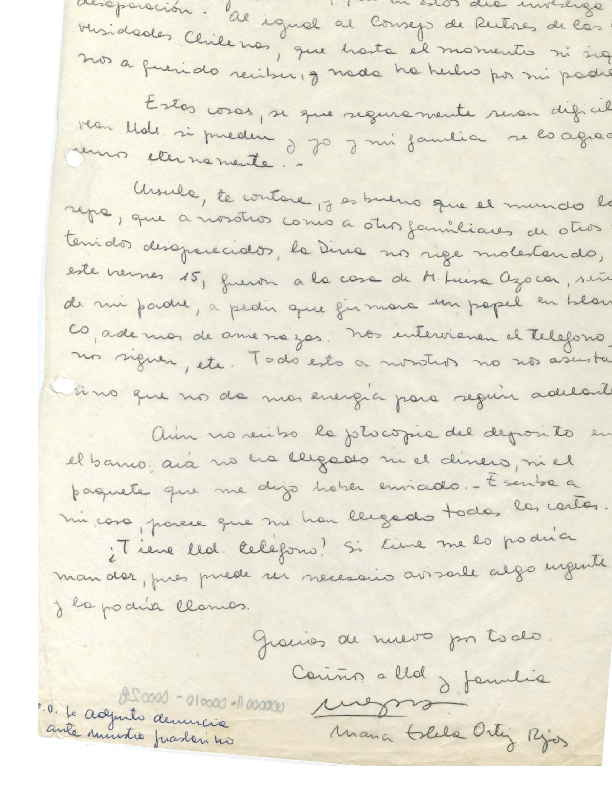 desaparición. 
Al igual al Consejo de Rectores de las
versidades Chilenas, que hasta el momento ni siq
nos a querido recibir, y nada ha hecho por mi padre
Estas cosas, se que seguramente seran dificil
vean Uds. si pueden y yo y mi familia se lo agrad
cemos eternamente. -
Ursula, te contare, y es bueno que el mundo lo
sepa, que a nosotros como a otros familiares de otros
tenidos desaparecidos, la Dina nos sige molestando,
este viernes 15, fueron a la casa de M. Luisa Azocar, seño
de mi padre, a pedir que firmara un papel en blan
co, ademas de amenazas. Nos intervienen el teléfono,
nos siguen, etc. Todo esto a nosotros no nos asusta
sino que nos da mas energía para seguir adelante
Aún no recibo la fotocopia del deposito en
el banco, acá no ha llegado ni el dinero, ni el
paquete que me dijo haber enviado. - Escriba a
mi casa, parece que me han llegado todas las cartas.
¿Tiene Ud. teléfono? Si tiene me lo podría
mandar, pues puede ser necesario avisarle algo urgente
y la podría llamar.
Gracias de nuevo por todo.
Cariños a Ud y familia
Maria Estela Ortiz Rojas
P.D. Le adjunto denuncia
ante ministro